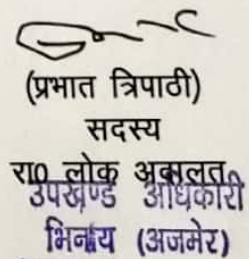 (प्रभात त्रिपाठी)
सदस्य
रा0 लोक अदालत
उपखण्ड अधिकारी
भिनाय (अजमेर)